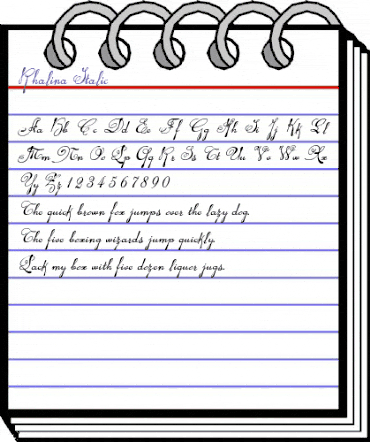 Khalina Italic
Aa Bb Cc Dd Ee Ff Gg Hh Ii Jj Kk Ll
Mm Nn Oo Pp Qq Rr Ss Tt Uu Vv Ww Xx
Yy Zz 1 2 3 4 5 6 7 8 9 0
The quick brown fox jumps over the lazy dog.
The five boxing wizards jump quickly.
Pack my box with five dozen liquor jugs.